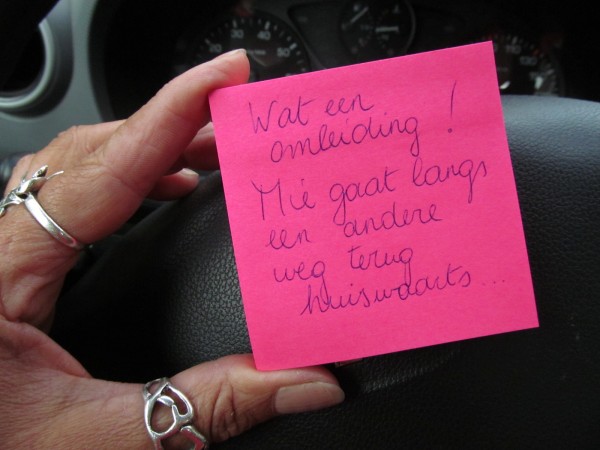 Wat een
omleiding!
Mie gaat langs
een andere
weg terug
huiswaarts...